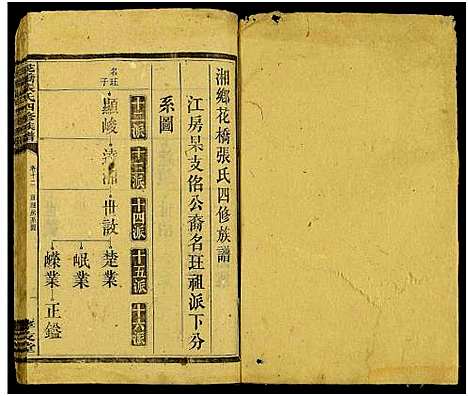 湘鄉花橋張氏四修族譜
江房杲支佲公裔名玨祖派下分
系圖
十二派
十三派
十四派
十五派
十六派
名玨子
顯峻
世設
楚業
岷業
嶸業
正鎰
氏四修族譜
卷十二